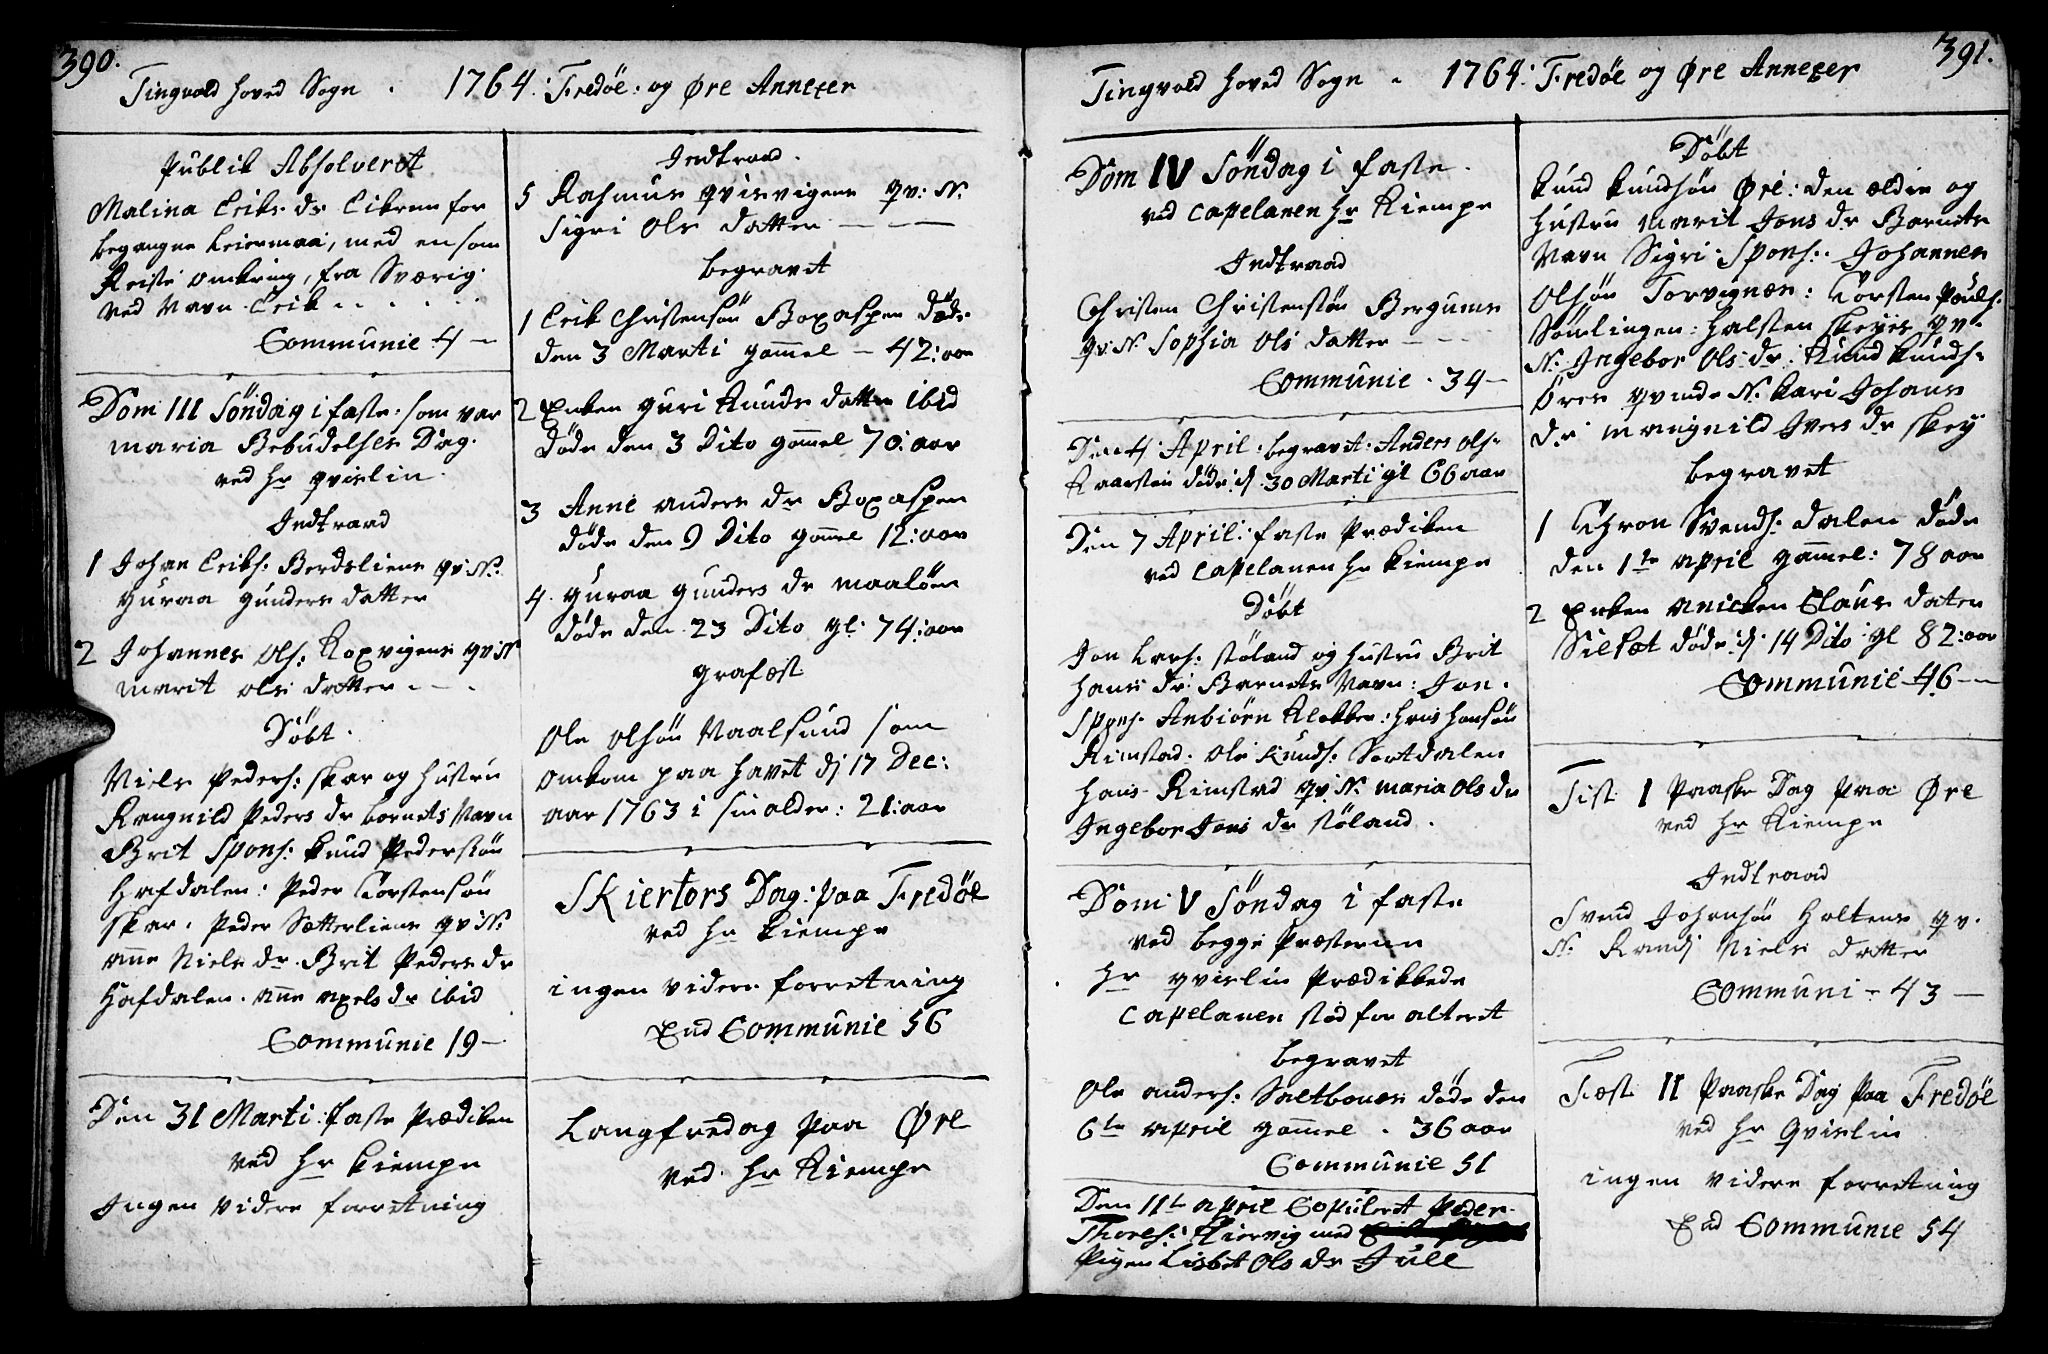 390.
Tingvold hoved Sogn . 1764: Fredöe: og Øre Annexer
Publik Absolveret
Malina Eriks dr Eikrem for
begangne Leiermaal, med en som
Reiste omkring, fra Sværig
ved Navn Erik
Communie 4 —
Dom III Söndag i faste: som var
Maria Bebudelses Dag.
ved hr qvislin
Indtraad
1 Johan Eriks: Berdsliens qv: N:
guraa gunders datter
2 Johannes Ols: Koxvigens qv: N
marit ols datter
Döbt.
Niels Peders: skar og hustru
Rangnild Peders dr barnets Navn
Brit Spons: knud Pedersön
hafdalen: Peder Torstensön
skar. Peder Sætterliens qv: N:
Anne Niels dr. Brit Peders dr
hafdalen. Anne Axels dr ibid
Communie 19 —
Den 31 Marti: faste Prædiken
ved hr kiempe
Ingen videre forretning
Indtraad.
5 Rasmus qvisvigens qv: N:
Sigri Ols datter
begravet
1 Erik Christensön Boxaspen döde
den 3 Marti gammel — 42: aar
2 Enken guri knuds datter ibid
döde den 3 Dito gammel 70: aar
3 Anne anders dr Boxaspen
döde den 9 Dito gammel 12: aar
4. guraa gunders dr maalöen
döde den 23 Dito gl: 74: aar
grafæst
Ole olsön Vaalsund som
omkom paa havet dj 17 Dec:
aar 1763 i sin alder: 21: aar
Skiertors Dag: paa Fredöe
ved hr kiempe
ingen videre forretning
End Communie 56
Langfredag paa Øre
ved hr Kiempe
391.
Tingvold hoved Sogn . 1764: Fredöe og Øre Annexer
Dom IV Söndag i faste.
ved capelanen hr Kiempe
Indtraad
Christen Christensön Bergums
qv: N: Sophia Ols datter
Communie . 34 —
Den 4 April begravet: Anders Ols:
döde dj 30 Marti gl 66 aar
Den 7 April: faste Prædiken
ved capelanen hr kiempe
Döbt
Jon Lars: stöland og hustru Brit
hans dr Barnets Navn: Jon.
Spons. Anbiörn Klokker: hans hansön
Rimstad. Ole knuds: Sortdalen
hans Rimstad qv: N: maria Ols dr
Ingebor Jons dr stöland.
Dom V Söndag i faste
ved begge Præsterne
hr qvislin Prædikkede
capelanen stod for alteret
begravet
Ole anders: Saltbones döde den
6te april gammel . 36 aar
Communie 51
Den 11te april Copuleret Peder
Thores: Kiorvig med
Pigen Lisbet Ols dr Jull
Döbt
knud knudsön Øre: den ældre og
hustru marit Jons dr Barnets
Navn Sigri Spons: Johannes
Olsön Torvignæs: Torsten Pouls:
Sömlingen: halsten skeyes qv.
N: Ingebor Ols dr: knud knuds:
Öres qvinde N: kari Johans
dr: mangnild Ivers dr skey
begravet
1 Thron Svends: dalen döde
den 1te april gammel: 78 aar
2 Enken Anicken Claus daten
Silset döde dj 14 Dito gl 82: aar
Communie 46 —
Fist. I Paaske Dag Paa Øre
ved hr Kiempe
Indtraad
Svend Johansön holtens qv.
N: Randj Niels datter
Communi — 43 —
Fæst II Paaske Dag paa Fredöe
ved hr Qvislin
ingen videre forretning
End Communie 54